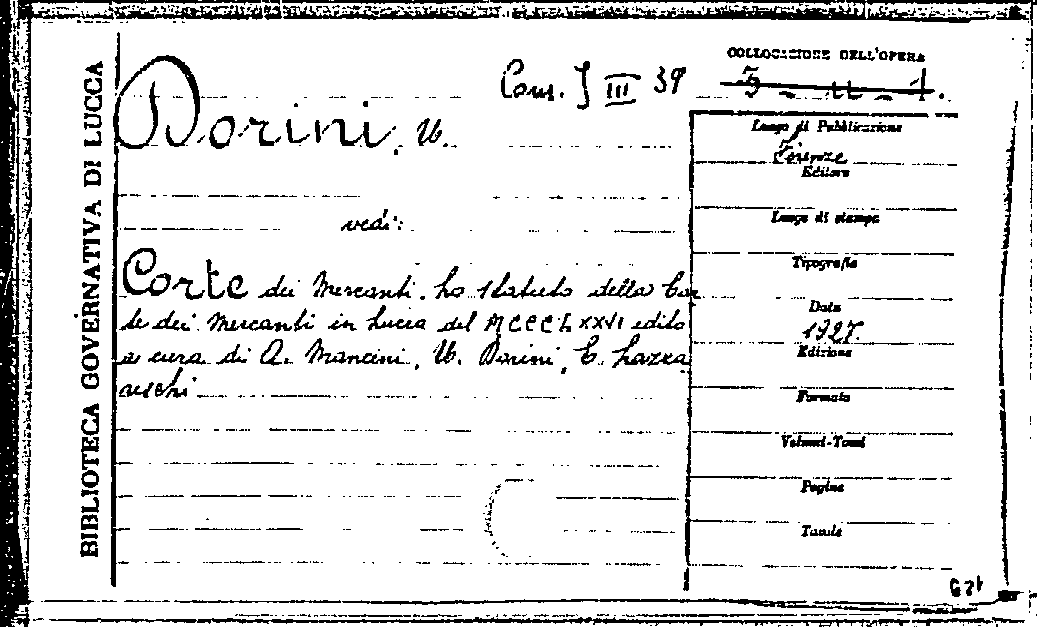 BIBLIOTECA GOVERNATIVA DI LUCCA
Dorini, U.
Cons. J III 39
vedi:
Corte dei Mercanti. Lo statuto della Cor
te dei Mercanti in Lucca del MCCCLXXVI edito
a cura di A. Mancini, U. Dorini, E. Lazza
reschi
COLLOCAZIONE DELL'OPERA
Luogo di Pubblicazione
Firenze
Editore
Luogo di stampa
Tipografia
Data
1927.
Edizione
Formato
Volumi-Tomi
Pagine
Tavole